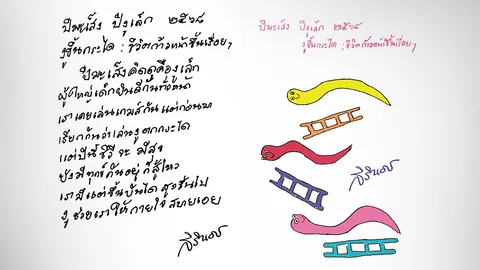 ปีมะเส็ง ปีงูเล็ก ๒๕๖๘
งูขึ้นกระได : ชีวิตก้าวหน้าขึ้นเรื่อยๆ
ปีมะเส็งคิดดูคืองูเล็ก
ผู้ใหญ่เด็กยินดีกันทั่วหน้า
เราเคยเล่นเกมส์กันแต่ก่อนมา
เรียกกันว่าเล่นงูตกกระได
แต่ปีนี้ชีวีจะมีสุข
ยังมีทุกข์กันอยู่ก็สู้ไหว
เรามีแต่ขึ้นบันไดสูงขึ้นไป
งูช่วยเราให้กายใจสบายเอย
สิรินธร
ปีมะเส็ง ปีงูเล็ก ๒๕๖๘
งูขึ้นกระได : ชีวิตก้าวหน้าขึ้นเรื่อยๆ
สิรินธร